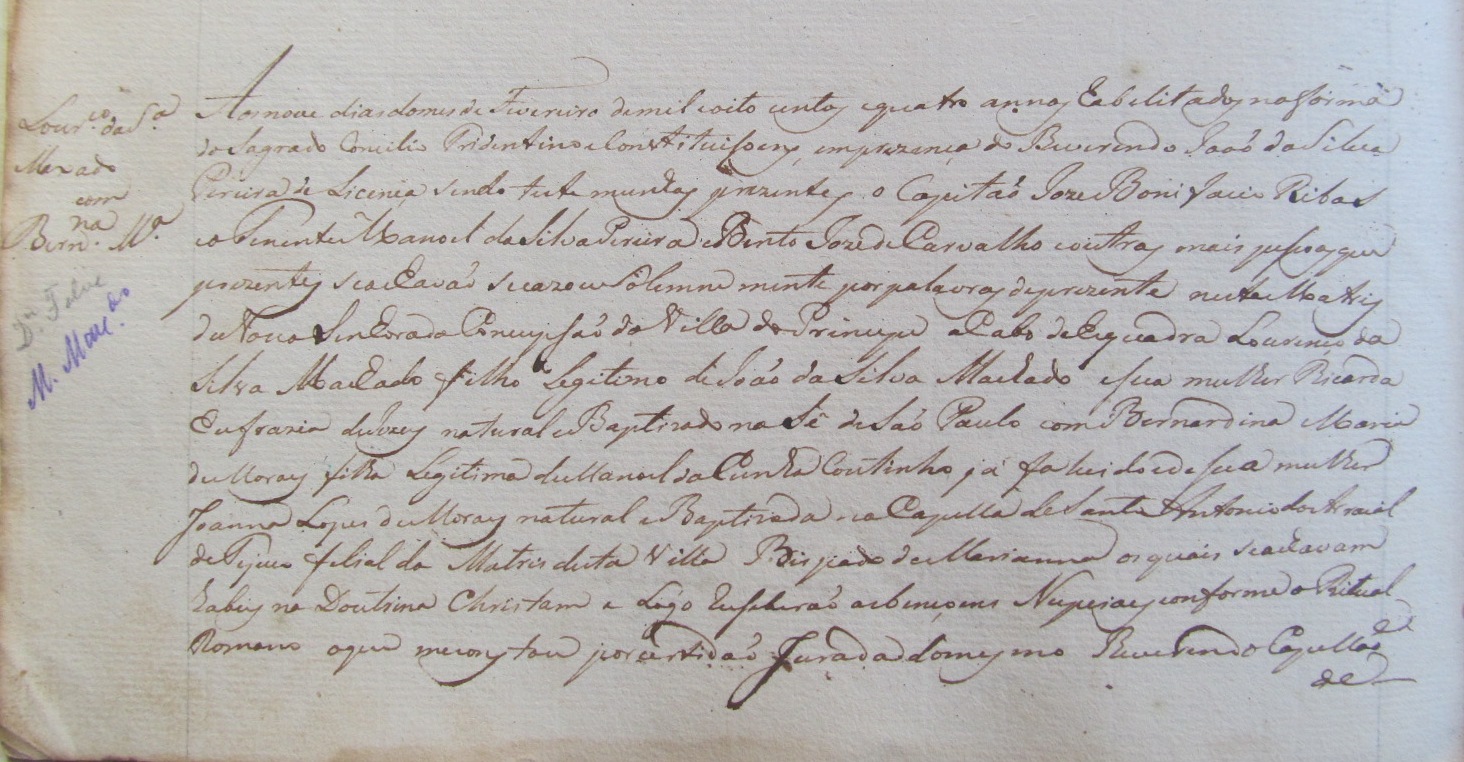 Lour.co da S.a
Maxado
com
Bern.na M.a
D.n Felue
M. Mac.do
Aos nove dias do mes de Fevereiro de mil e oito centos e quatro annos Habelitados na forma
do Sagrado Concilio Tridentino e Constituisoens, em prezença do Reverendo Joaõ da Silva
Pereira de Licença sendo testemunhas prezentes o Capitaõ Joze Bonifacio Ribas
e o Tenente Manoel da Silva Pereira e Bento Joze de Carvalho e outras mais pessoas que
prezentes se achavaõ se cazou Sôlemnemente por palavras de prezente nesta Matris
de Nossa Senhora da Conceisaõ da Villa do Principe o Cabo de Esquadra Lourenço da
Silva Machado filho Legitimo de Joaõ da Silva Machado e sua mulher Ricarda
Eufrazia de Jezus natural e Baptizado na Sê de Saõ Paulo com Bernardina Maria
de Moraes filha Legitima de Manoel da Cunha Coutinho já falecido e de sua mulher
Joanna Lopes de Moraes natural e Baptizada na Capella de Santo Antonio do Arraial
de Tijuco filial da Matris desta Villa Bispado de Marianna os quais se achavam
habeis na Doutrina Christam e Lógo receberaõ as bençoens Nupciaes conforme o Ritual
Romano o que me constou por certidaõ Jurada do mesmo Reverendo Capellaõ
de